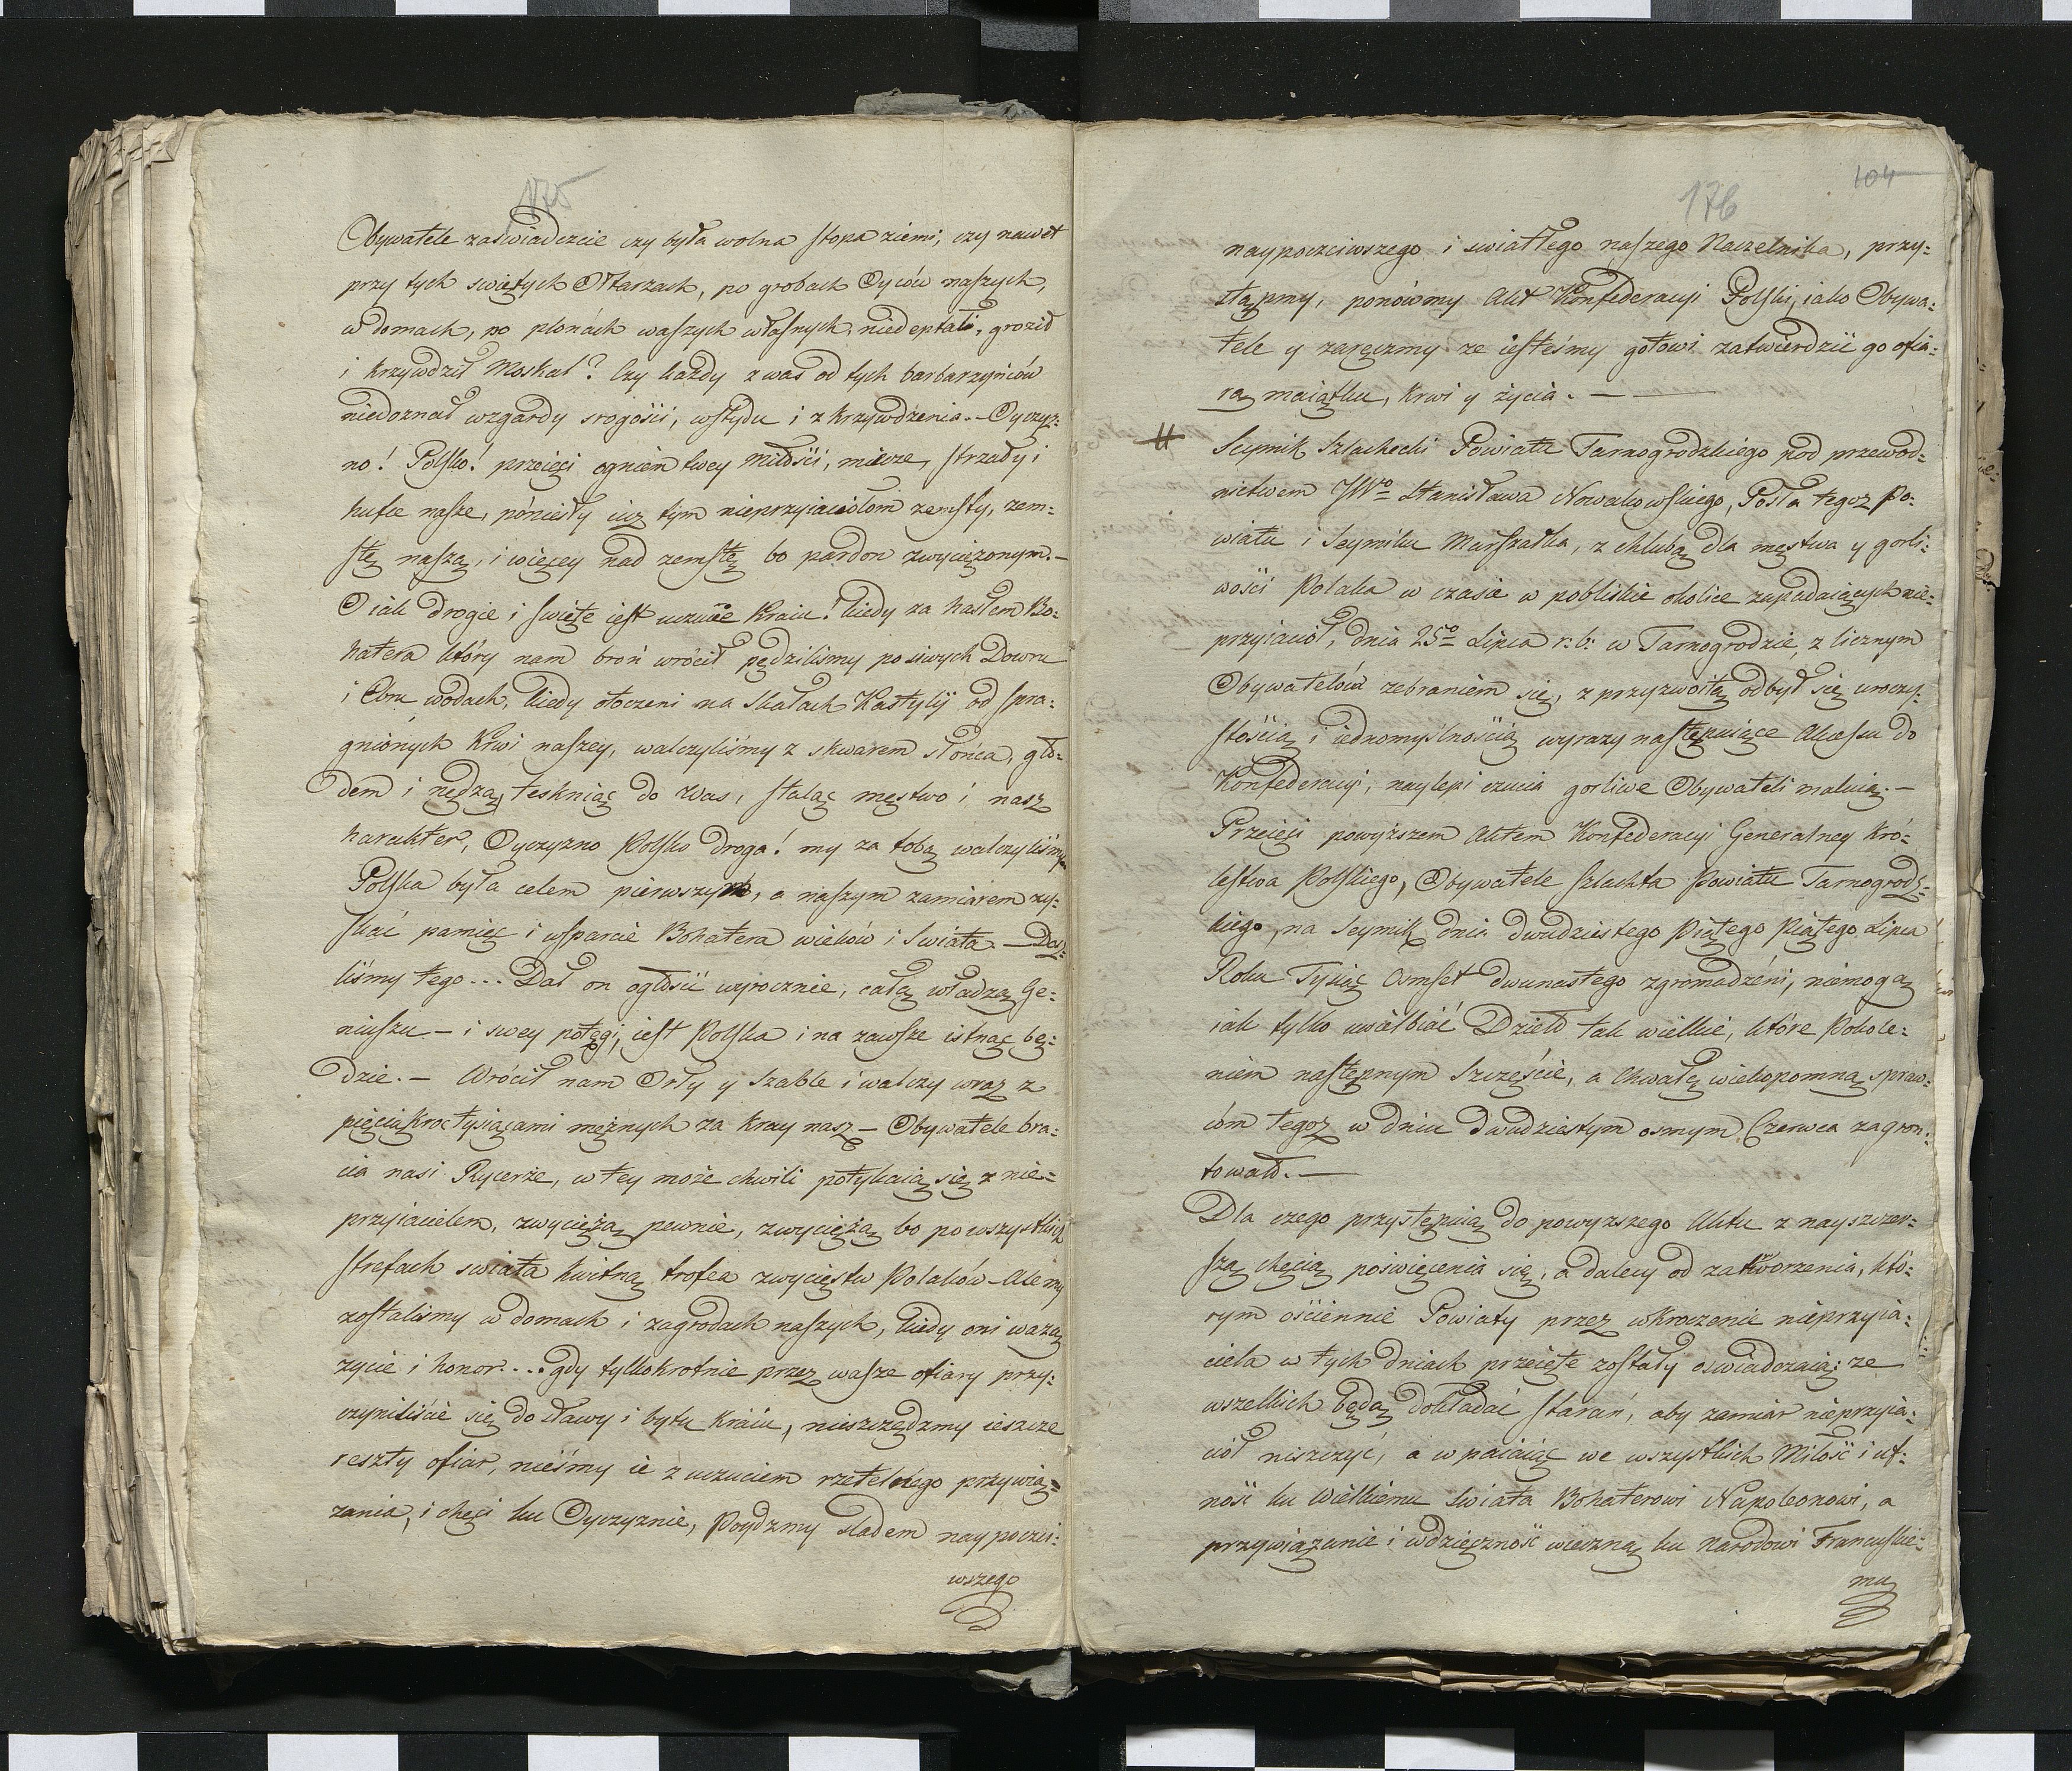 175
Obywatele zaswiadczcie czy była wolna stopa ziemi, czy nawet
przy tych swiętych Ołtarzach, po grobach Oyców naszych,
w domach, po płonách waszych własnych, niedeptał, groził
i krzywdził Moskal? Czy każdy z was od tych barbarzyńców
niedoznał wzgardy srogości, wstydu i zkrzywdzenia. - Oyczyz=
no! Polsko! przeięci ogniem twey miłości, miecze, strzały i
hufce nasze, póniesły iuz tym nieprzyiaciołom zemsty, zem=
stę naszą, i więcey nad zemstę bo pardon zwyciężonym. -
O iak drogie i święte iest uczucie Kraiu! kiedy za hasłem Bo=
hatera który nam broń wrócił pędziliśmy po siwych Dowru
i Ebru wodach, kiedy otoczeni na skałach Kastylij od spra=
gnionych Krwi naszey, walczyliśmy z skwarem słońca, gło=
dem i nędzą, teskniąc do Was, staląc męstwo i nasz
harakter, Oyczyzno Polsko droga! my za tobą walczyliśmy
Polska była celem pierwszym, a naszym zamiarem zy=
skać pamięć i wsparcie Bohatera wieków i Swiata - Doz=
liśmy tego... Dał on ogłosić wyrocznie, całą władzą Ge=
niuszu - i swey potęgi, iest Polska i na zawsze istnąć bę=
dzie. - Wrócił nam Orły y Szable i walczy wraz z
pięciukroć tysiącami mężnych za kray nasz - Obywatele bra=
cia nasi Rycerze, w tey może chwili potykaią się z nie=
przyiacielem, zwyciężą pewnie, zwyciężą bo po wszystkich
strefach swiata kwitną trofea zwycięstw Polaków - Ale my
zostalismy w domach i zagrodach naszych, kiedy oni ważą
życie i honor... gdy tyllokrotnie przez wasze ofiary przy=
czyniliście się do sławy i bytu Kraiu, nieszczędzmy ieszcze
reszty ofiar, nieśmy ie z uczuciem rzetelnego przywią=
zania, i chęci ku Oyczyznie, Poydzmy sladem naypoczci=
wszego
104
176
naypoczciwszego i swiatłego naszego Naczelnika, przy=
stąpmy, ponówmy Akt Konfederacyi Polski, iako Obywa=
tele y zaręczmy ze iesteśmy gotowi zatwierdzić go ofia=
rą maiątku, Krwi y życia. -
# Seymik Szlachecki Powiatu Tarnogrodzkiego pod przewod=
nictwem JWo Stanisława Nowakowskiego, Posła tegoz Po=
wiatu i Seymiku Marszałka, z chlubą dla męstwa y gorli=
wości Polaka w czasie w pobliskie okolice zapadaiących nie=
przyiaciół, dnia 25o Lipca r: b: w Tarnogrodzie, z licznym
Obywatelów zebraniem się, z przyzwoitą odbył się uroczy=
stością i iednomyślnością wyrazy następuiące Akcesu do
Konfederacyi, naylepi czucia gorliwe Obywateli maluią. -
Przeięci powyższem Aktem Konfederacyi Generalney Kró=
lestwa Polskiego, Obywatele Szlachta Powiatu Tarnogrodz=
kiego, na Seymik dnia dwudziestego Piętego Piątego Lipca
Roku Tysiąc Osmset dwunastego zgromadzéni, niemogą
iak tylko uwielbiać Dzieło tak wielkie, które Pokole=
niem następnym Szczęście, a Chwałę wiekopomną spraw=
ców tegoz w dniu dwudziestym osmym Czerwca zagron=
tował. -
Dla czego przystępuią do powyzszego Aktu z nayszczer=
szą chęcią poświęcenia się, a dalecy od zatworzenia, któ=
rym ościennie Powiaty przez wkroczenie nieprzyia=
ciela w tych dniach przeięte zostały oswiadczaią: ze
wszelkich będą dokładać starań, aby zamiar nieprzyia=
ciół niszczyć, a wpaiaiąc we wszystkich Miłość i uf=
ność ku Wielkiemu Swiata Bohaterowi Napoleonowi, a
przywiązanie i wdzięczność wieczną ku Narodowi Francuskie=
mu